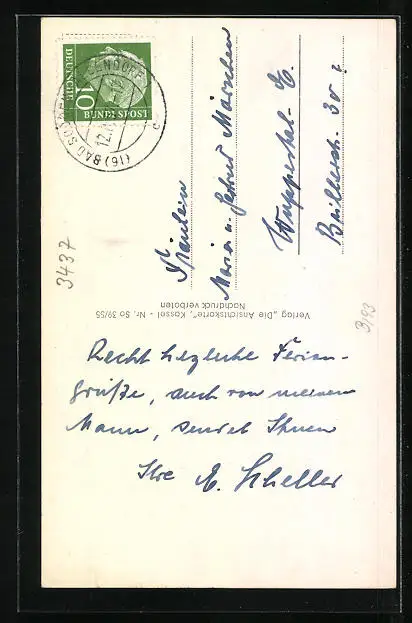 DEUTSCHE
BUNDESPOST
10
(16) BAD SOODEN-ALLENDORF
Fräulein
Maria u. Gertrud Märschen
Wuppertal-E.
Brillerstr. 30
3437
Verlag „Die Ansichtskarte", Kassel - Nr. So 39/55
Nachdruck verboten
3193
Recht herzliche Ferien-
grüße, auch von meinem
Mann, sendet Ihnen
Ihre E. Scheller